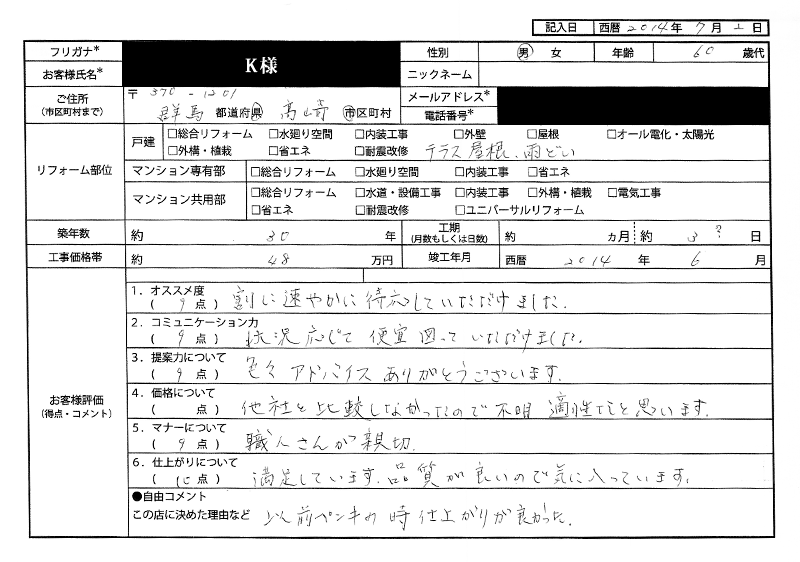 記入日 西暦 2014年 7月 1日
フリガナ* K様 性別 男 女 年齢 60 歳代
お客様氏名* ニックネーム
ご住所 (市区町村まで) 〒 370-1201 メールアドレス*
群馬 都道府県 高崎 市区町村 電話番号*
リフォーム部位 戸建 □総合リフォーム □水廻り空間 □内装工事 □外壁 □屋根 □オール電化・太陽光
□外構・植栽 □省エネ □耐震改修 テラス屋根、雨どい
マンション専有部 □総合リフォーム □水廻り空間 □内装工事 □省エネ
マンション共用部 □総合リフォーム □水道・設備工事 □内装工事 □外構・植栽 □電気工事
□省エネ □耐震改修 □ユニバーサルリフォーム
築年数 約 30 年 工期 (月数もしくは日数) 約 ヵ月 約 3? 日
工事価格帯 約 48 万円 竣工年月 西暦 2014 年 6 月
お客様評価 (得点・コメント)
1．オススメ度
( 9 点 ) 割に速やかに待応していただけました.
2．コミュニケーション力
( 9 点 ) 状況応じて便宜図っていただけました.
3．提案力について
( 9 点 ) 色々アドバイスありがとうございます.
4．価格について
( 点 ) 他社と比較しなかったので不明 適性だと思います.
5．マナーについて
( 9 点 ) 職人さんが親切.
6．仕上がりについて
( 10 点 ) 満足しています.品質が良いので気に入っています.
●自由コメント
この店に決めた理由など 以前ペンキの時仕上がりが良かった.